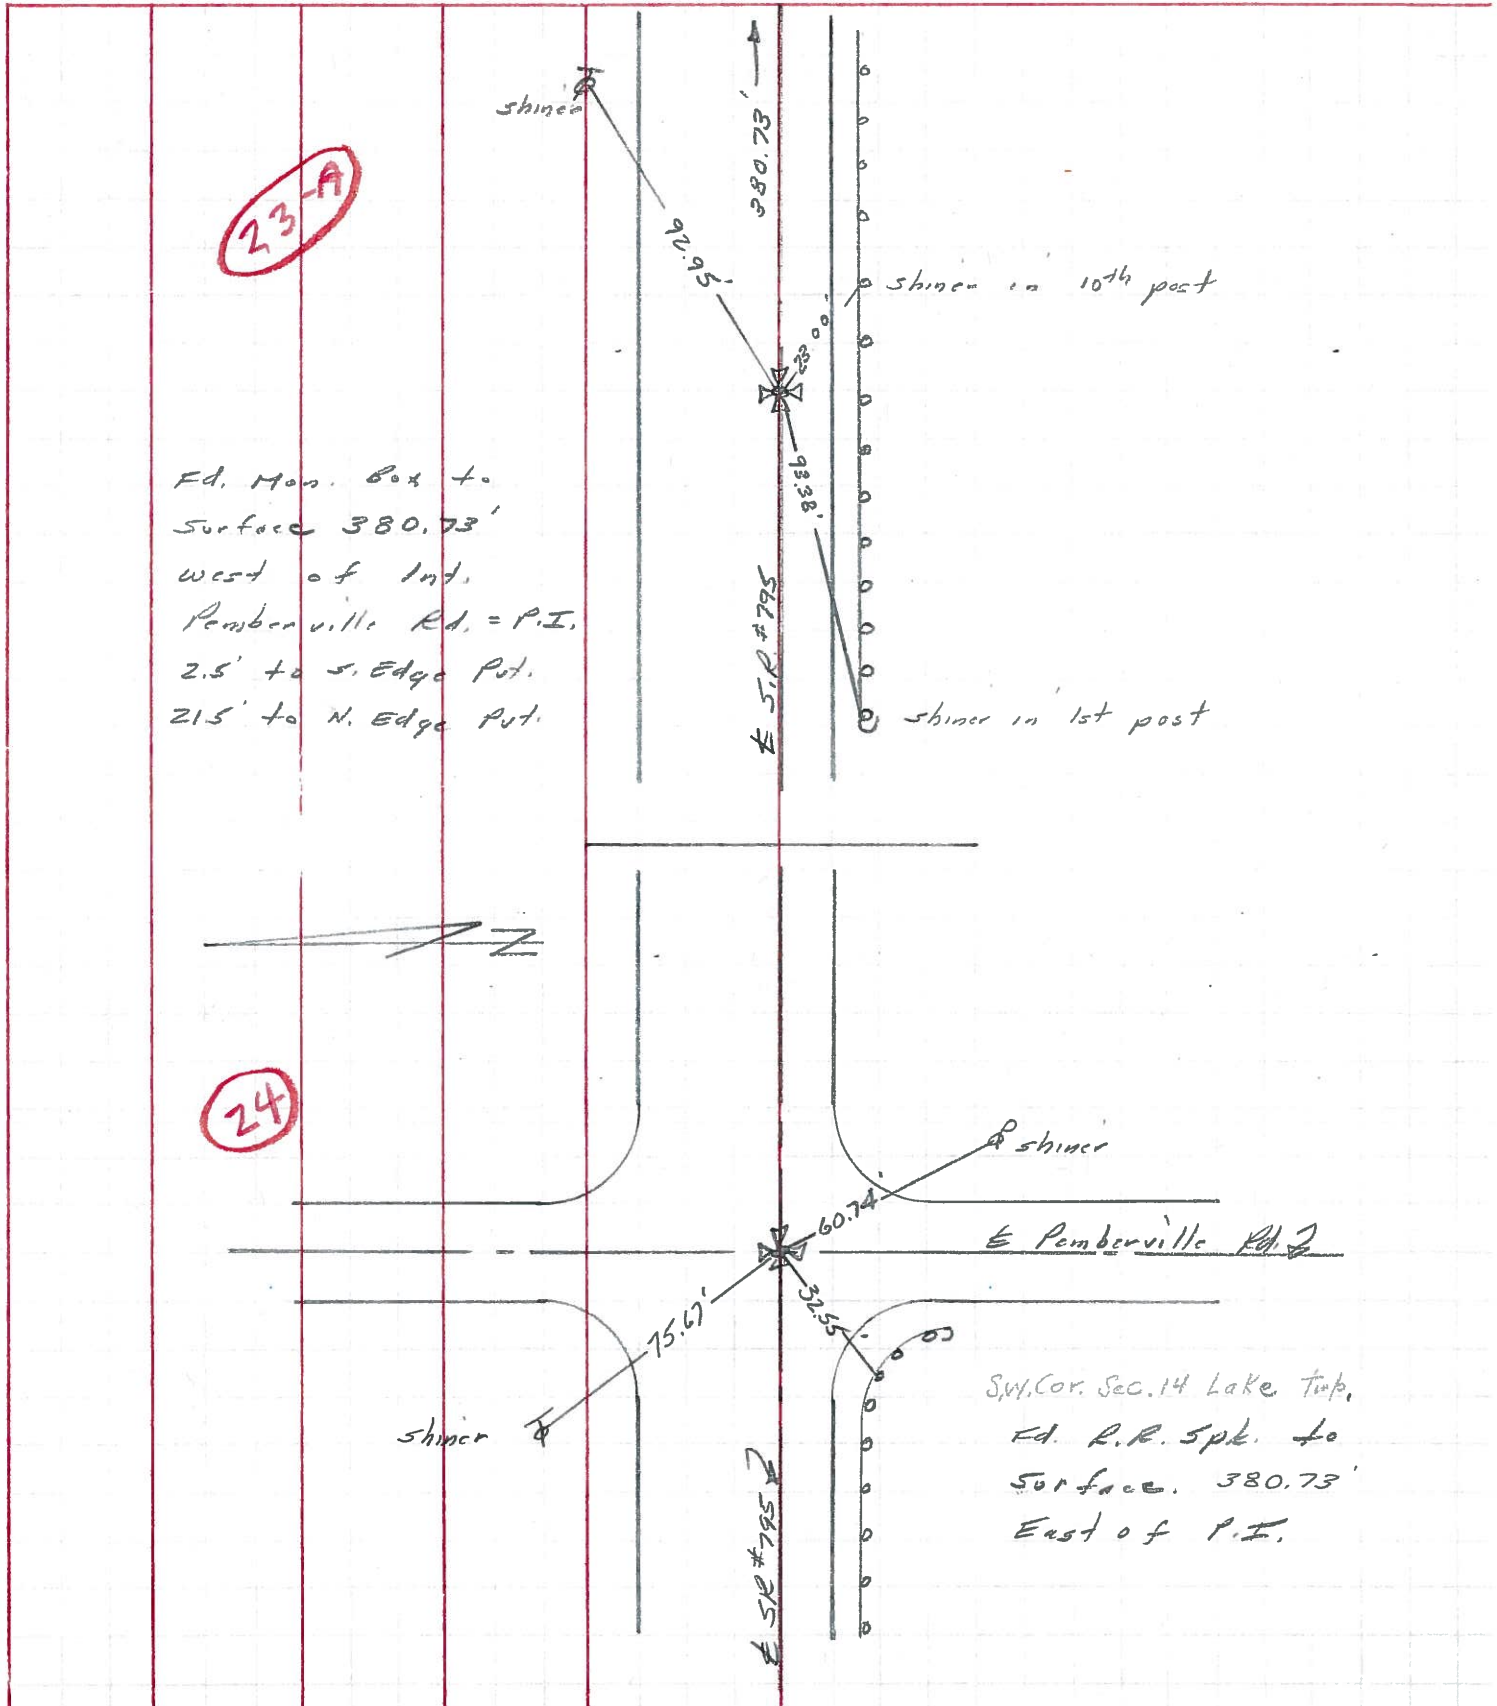 shiner
380.73'
23-A
92.95'
shiner in 10th post
23.00'
93.38'
Fd. Mon. Box to
Surface 380.73'
west of Int.
Pemberville Rd. = P.I.
2.5' to S. Edge Pvt.
21.5' to N. Edge Pvt.
℄ S.R #795
shiner in 1st post
N
24
shiner
60.74'
℄ Pemberville Rd.
75.67'
32.55'
shiner
S.W. Cor. Sec. 14 Lake Twp.
Fd. R.R. Spk. to
Surface. 380.73'
East of P.I.
℄ SR #795